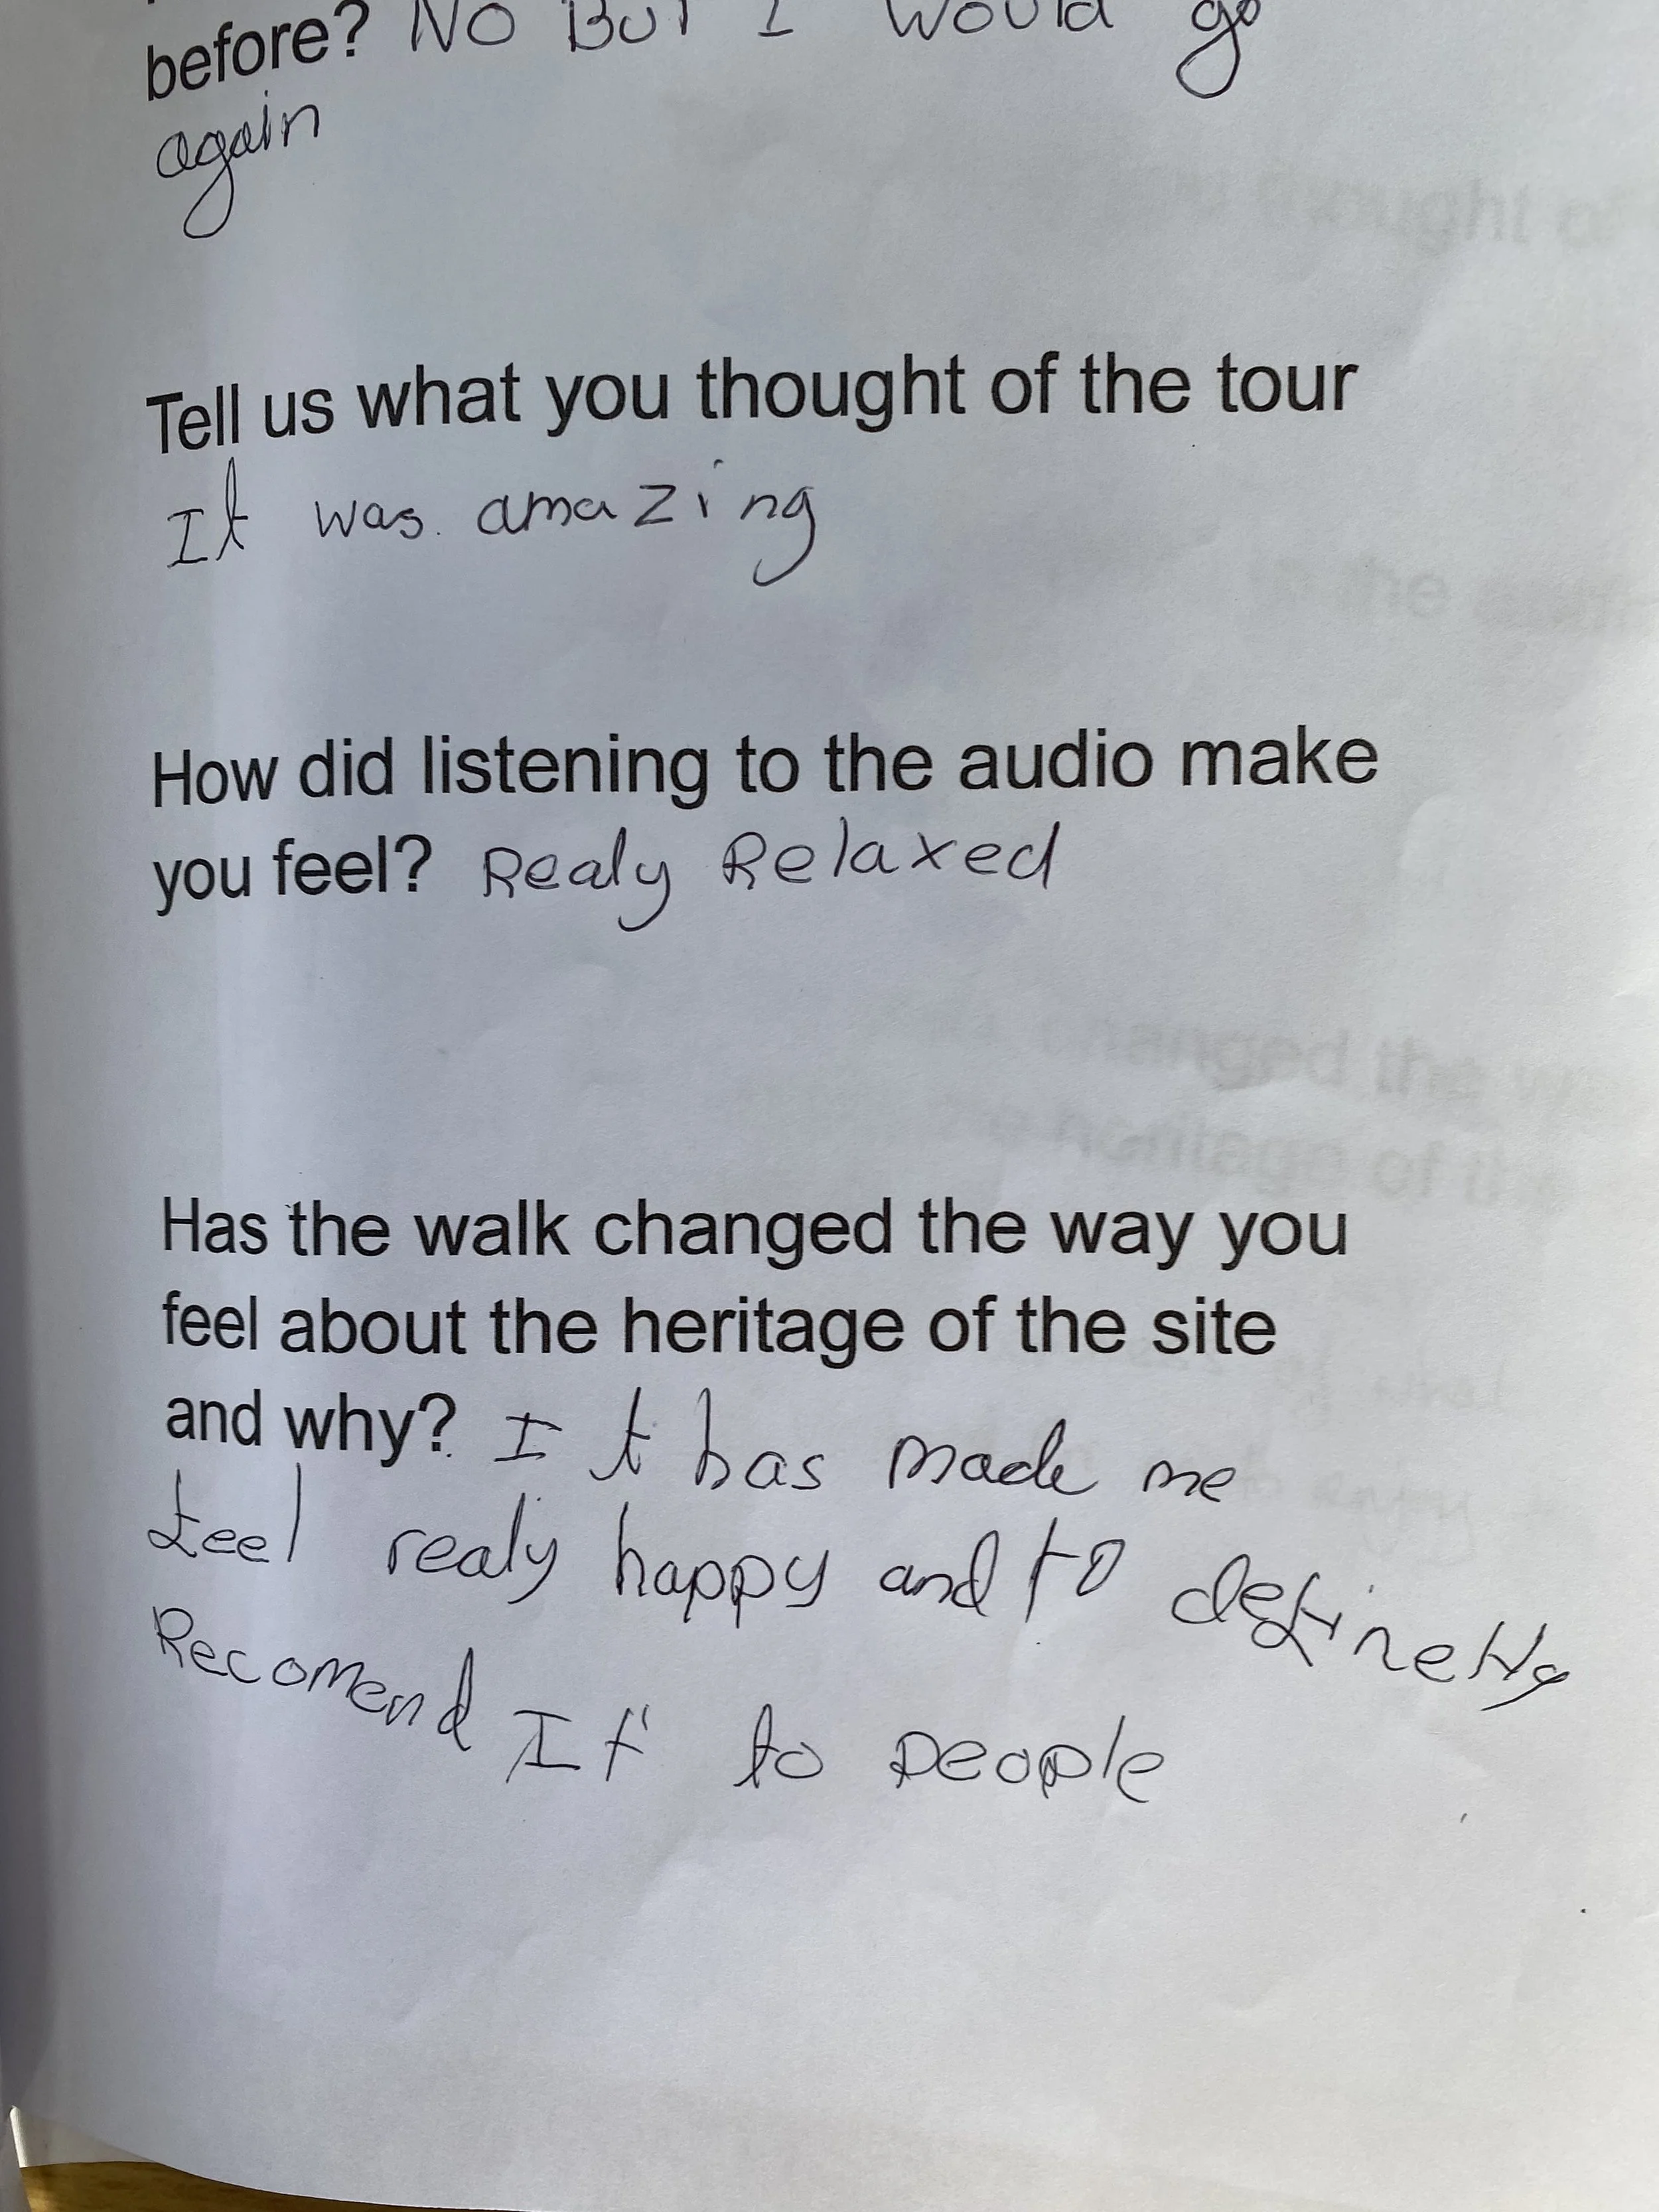 before? No But I would go
again
Tell us what you thought of the tour
It was amazing
How did listening to the audio make
you feel? Realy Relaxed
Has the walk changed the way you
feel about the heritage of the site
and why? It has made me
feel realy happy and to definetly
Recomend It to people